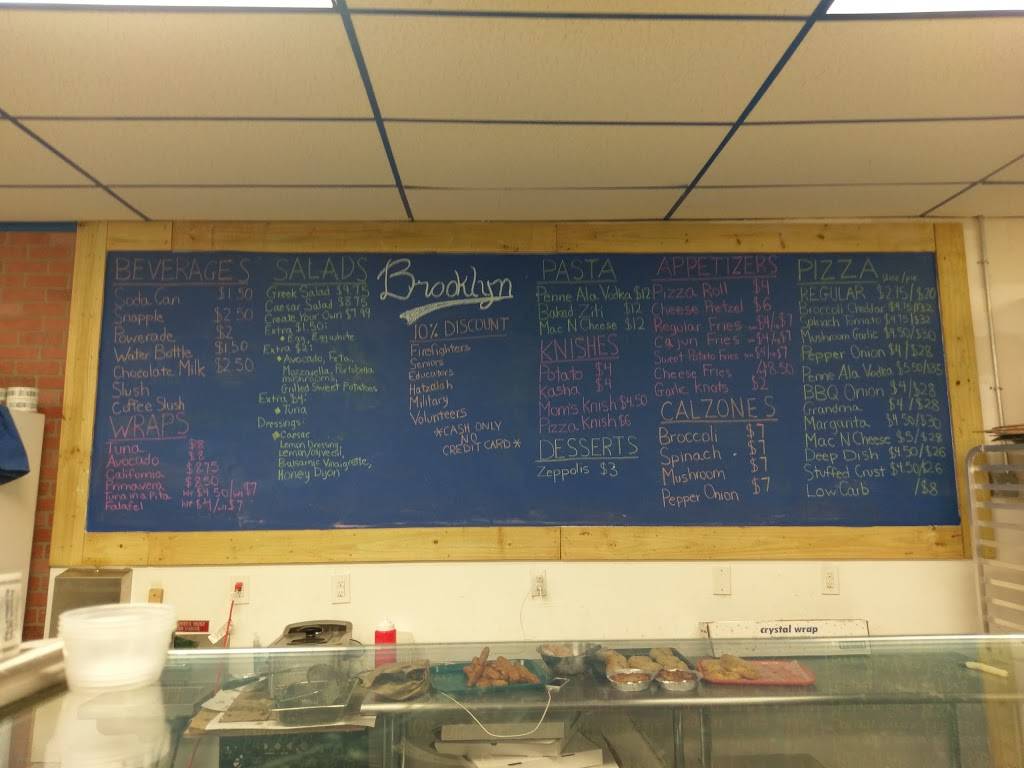 BEVERAGES
Soda Can $1.50
Snapple $2.50
Powerade $2
Water Bottle $1.50
Chocolate Milk $2.50
Slush
Coffee Slush
WRAPS
Tuna $8
Avocado $8
California $8.75
Primavera $8.50
Tuna in a Pita HF $4.50/WH $7
Falafel HF $4/WH $7
SALADS
Greek Salad $9.75
Caesar Salad $8.75
Create Your Own $7.99
Extra $1.50:
Egg,
Extra $2:
Avocado, Feta,
Mozzarella, Portobella
mushrooms,
Grilled Sweet Potatoes
Extra $4:
Tuna
Dressings:
Caesar
Lemon Dressing,
Lemon/olive oil,
Balsamic Vinaigrette,
Honey Dijon
Brooklyn
10% DISCOUNT
Firefighters
Seniors
Educators
Hatzalah
Military
Volunteers
*CASH ONLY
NO
CREDIT CARD*
PASTA
Penne Ala Vodka $12
Baked Ziti $12
Mac N Cheese $12
KNISHES
Potato $4
Kasha $4
Mom's Knish $4.50
Pizza Knish $6
DESSERTS
Zeppolis $3
APPETIZERS
Pizza Roll $4
Cheese Pretzel $6
Regular Fries $4/$7
Cajun Fries $4/$7
Sweet Potato Fries $4/$7
Cheese Fries $8.50
Garlic Knots $2
CALZONES
Broccoli $7
Spinach $7
Mushroom $7
Pepper Onion $7
PIZZA Slice/pie
REGULAR $2.75/$20
Broccoli Cheddar $4.95/$32
Spinach Tomato $4.75/$32
Mushroom Garlic $4.50/$30
Pepper Onion $4/$28
Penne Ala Vodka $5.50/$35
BBQ Onion $4/$28
Grandma $4/$28
Margarita $4.50/$30
Mac N Cheese $5/$28
Deep Dish $4.50/$26
Stuffed Crust $4.50/$26
Low Carb /$8
crystal wrap